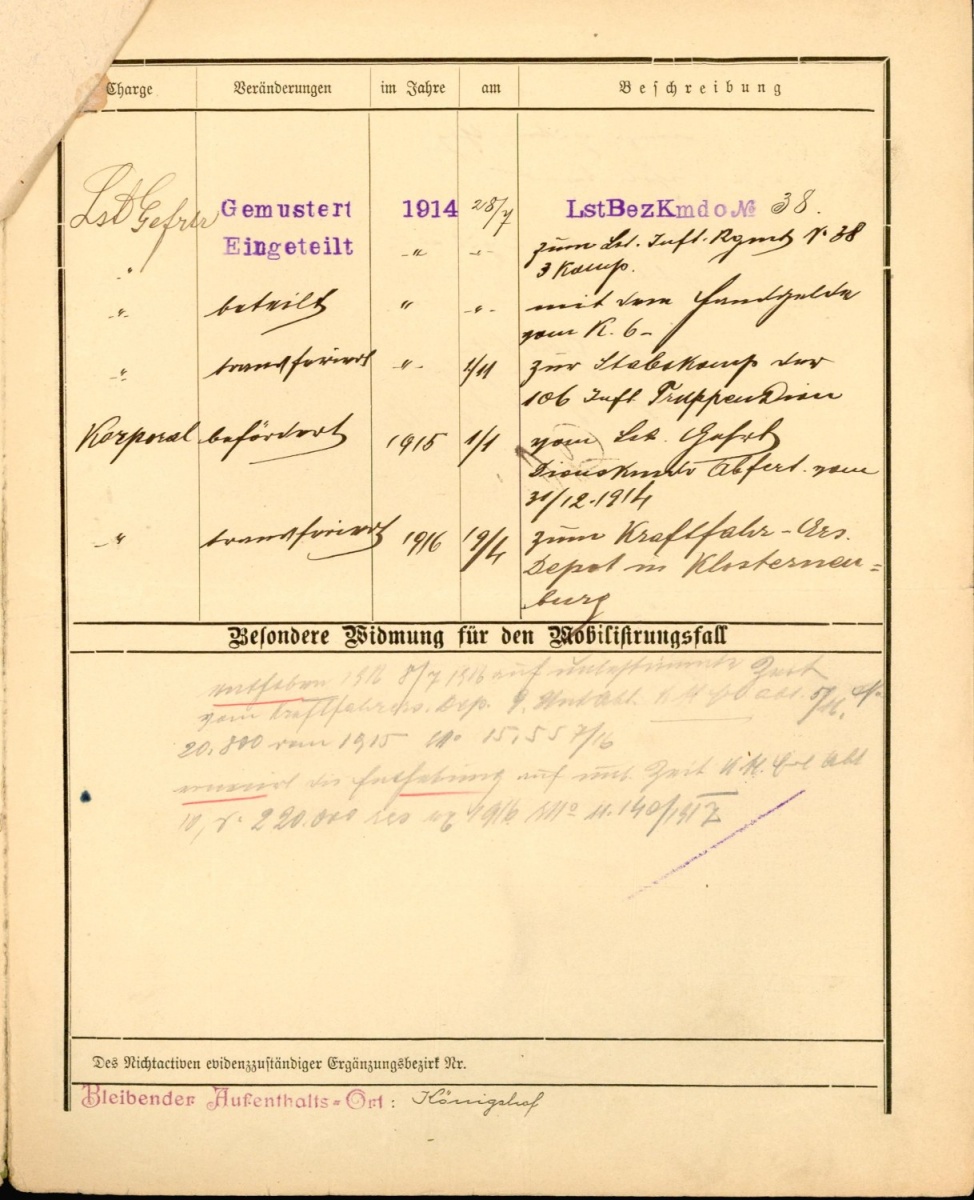 Charge Veränderungen im Jahre am Beschreibung
Lst Gefrtr Gemustert 1914 28/7 LstBezKmdo № 38.
" Eingeteilt -"- -"- zum Lst. Inft. Rgmt N° 38
3 Komp.
-"- beteilt " -"- mit dem Handgelde
vom K. 6-
-"- transferiert -"- 4/11 zur Stabskomp der
106 Inft. TruppenDion
Korporal befördert 1915 1/1 vom Lst. Gefrt
Dionskmdo Abfert. vom
31/12.1914
-"- transferiert 1916 19/4 zum Kraftfahr-Ers.
Depot in Klosterneu=
burg
Besondere Widmung für den Mobilisirungsfall
enthoben 8/7 1916 auf unbestimmte Zeit
vom Kraftfahrers. Dep.
20.800 von 1915 15.557/16
die Enthebung auf unb. Zeit K.M. Abt
10, N° 220.000 1916 M° 11.140/1917
Des Nichtactiven evidenzzuständiger Ergänzungsbezirk Nr.
Bleibender Aufenthalts=Ort: Königshof